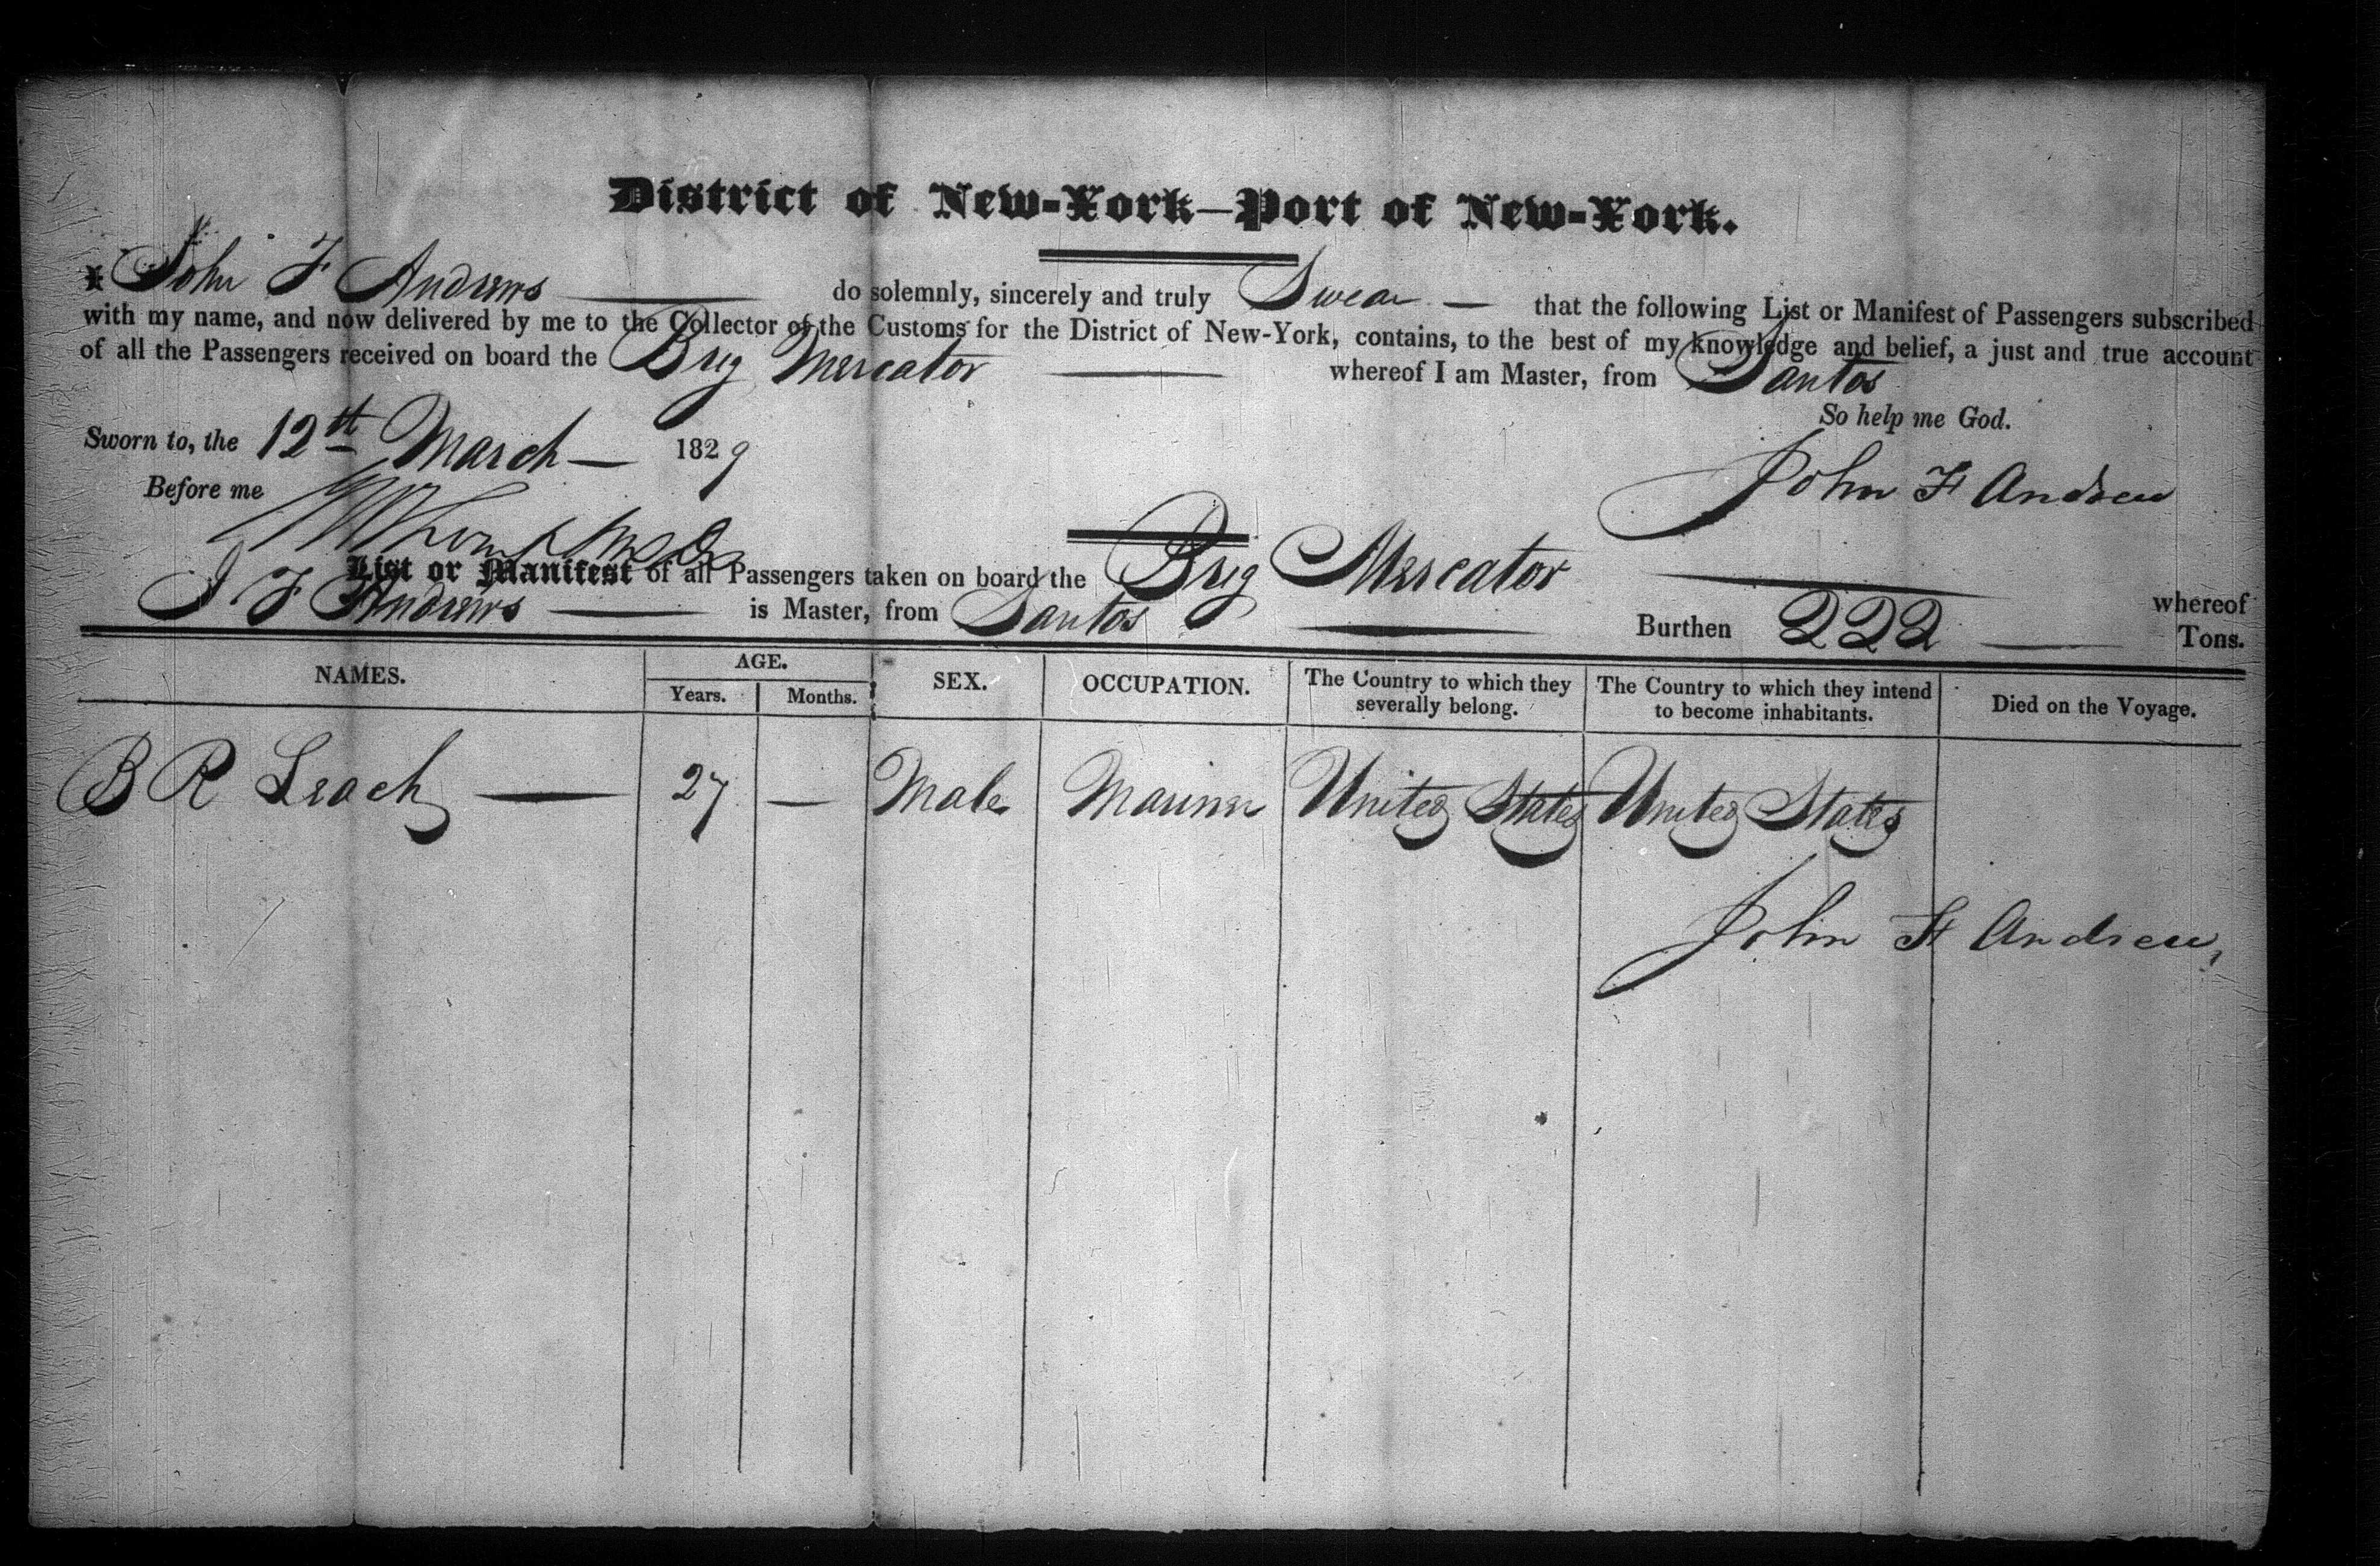 District of New-York—Port of New-York.
I John F Andrews do solemnly, sincerely and truly Swear — that the following List or Manifest of Passengers subscribed
with my name, and now delivered by me to the Collector of the Customs for the District of New-York, contains, to the best of my knowledge and belief, a just and true account
of all the Passengers received on board the Brig Mercator whereof I am Master, from Santos
So help me God.
Sworn to, the 12th March — 1829
John F Andrews
Before me
List or Manifest of all Passengers taken on board the Brig Mercator whereof
J F Andrews is Master, from Santos Burthen 222 Tons.
NAMES. AGE. Years. Months. SEX. OCCUPATION. The Country to which they severally belong. The Country to which they intend to become inhabitants. Died on the Voyage.
B R Leach — 27 — Male Mariner United States United States
John F Andrews